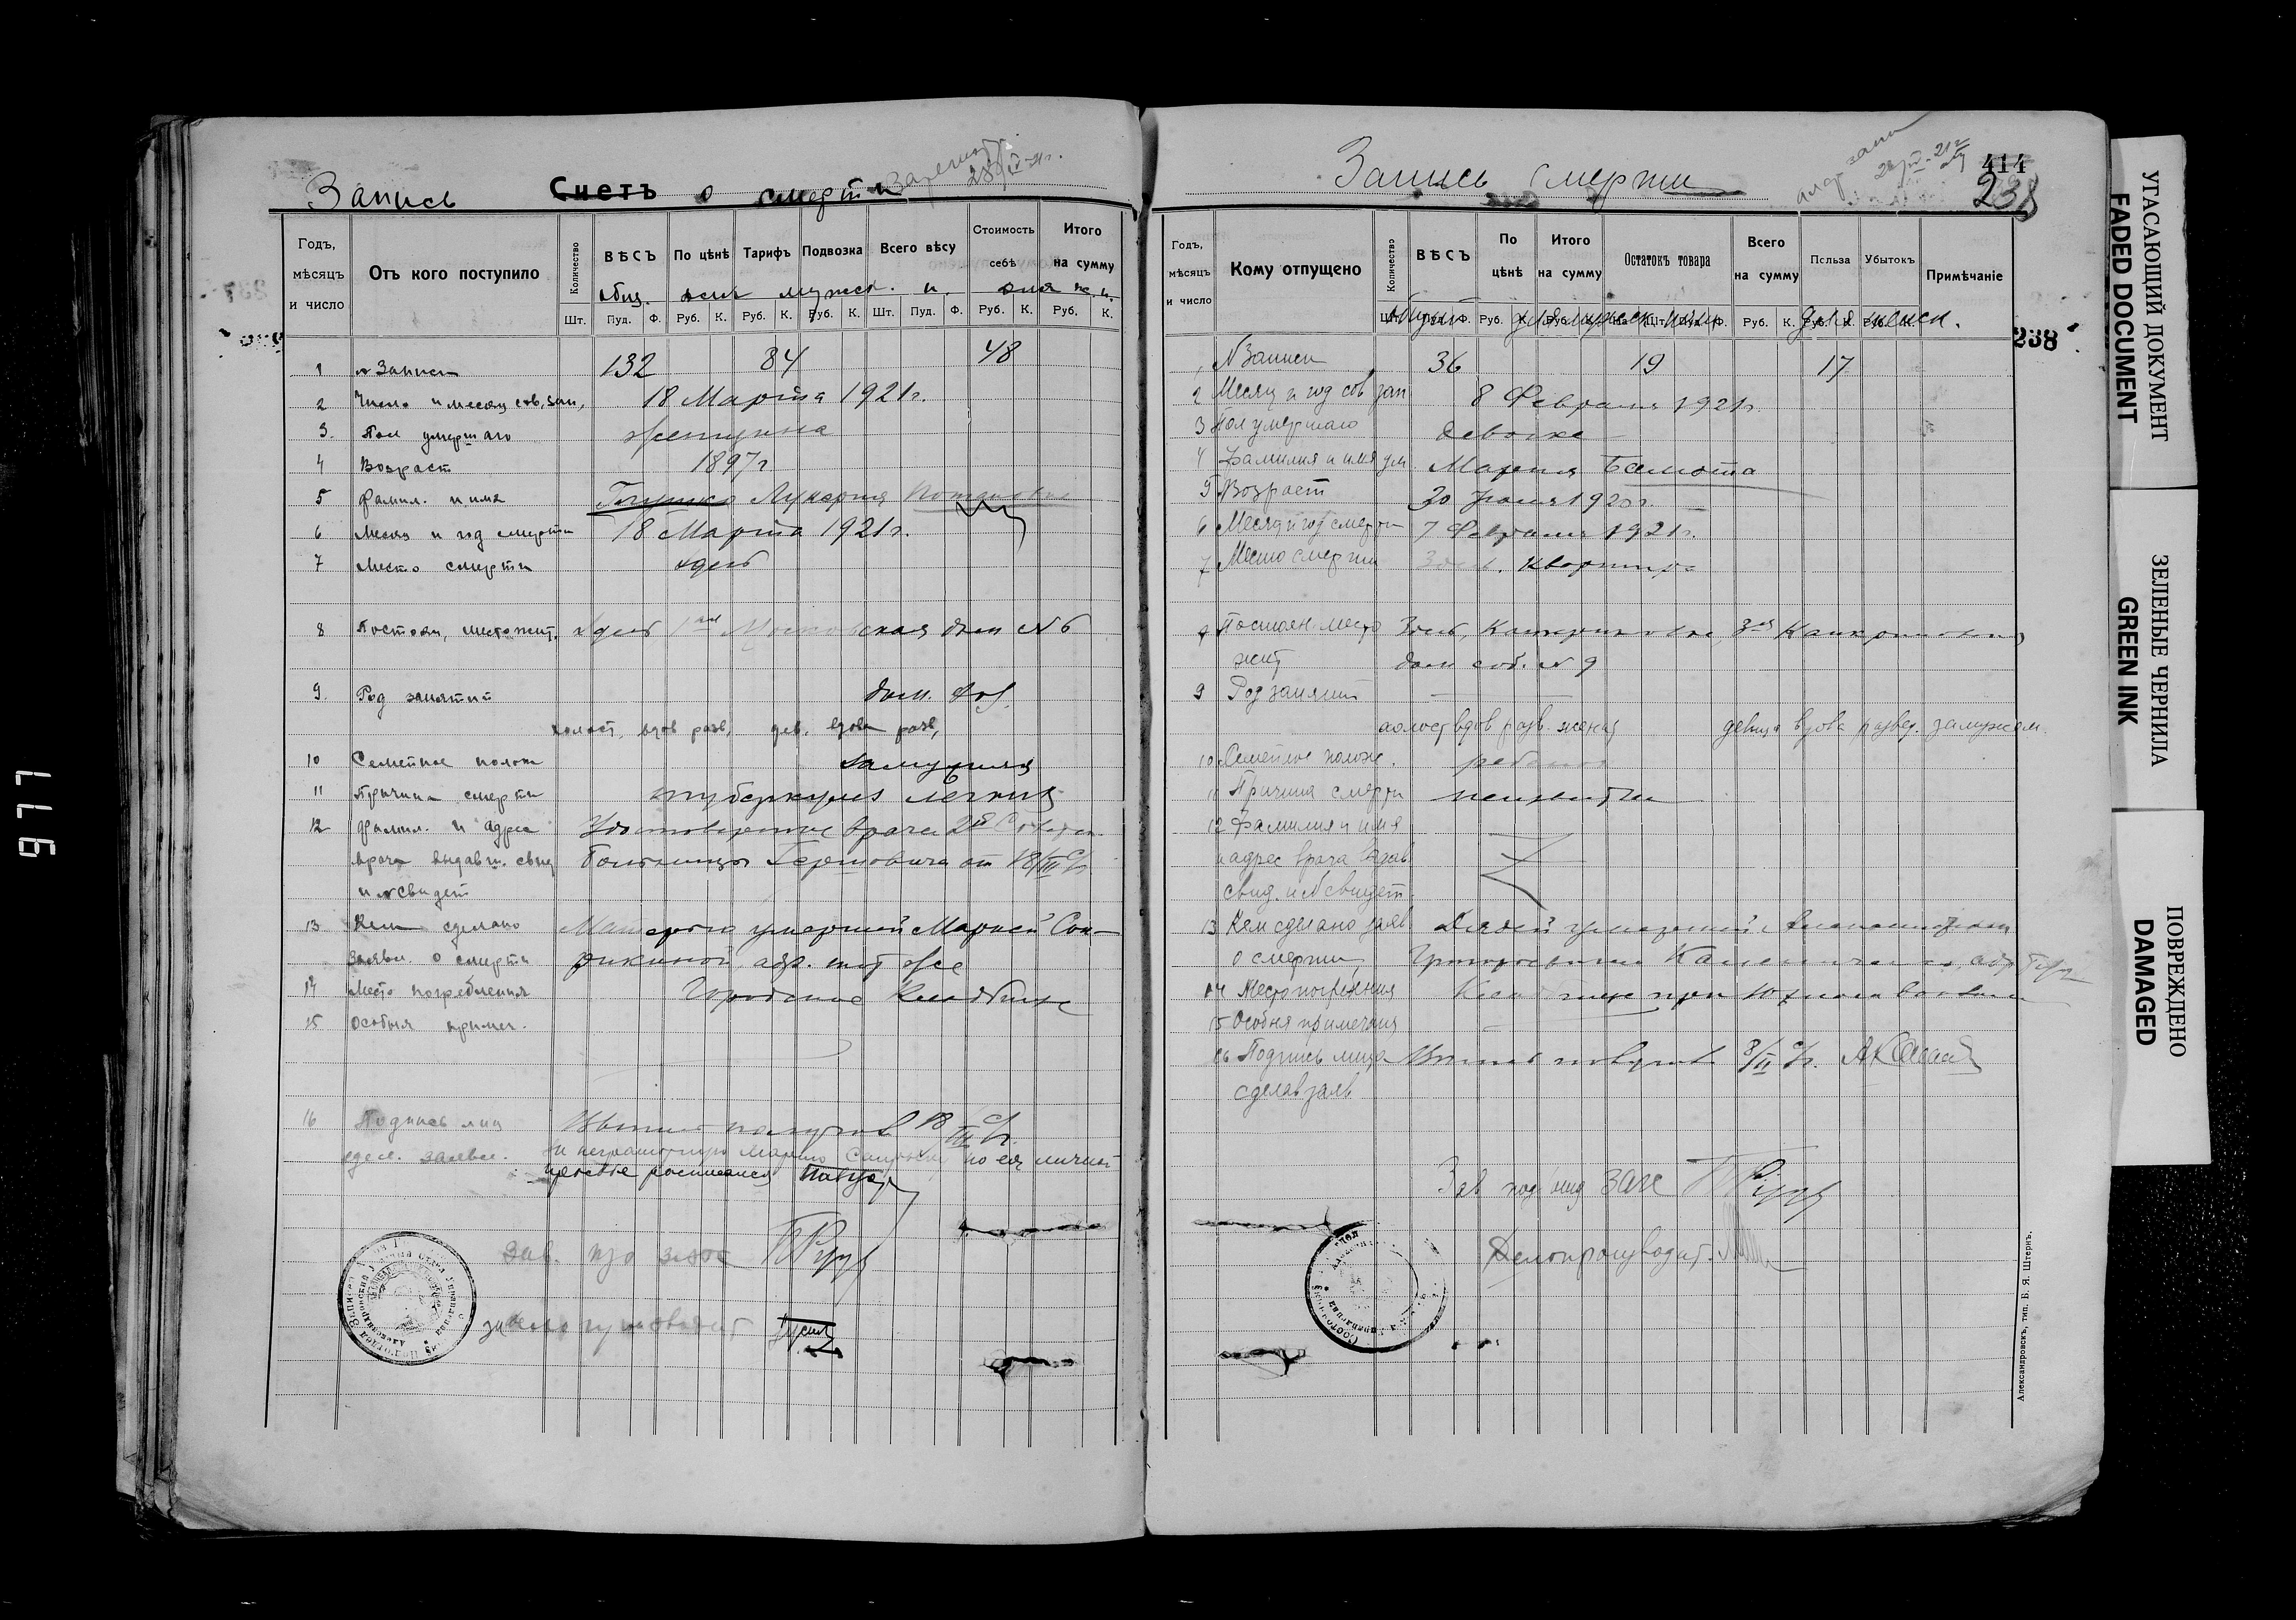 977
Запись Счетъ о смерти
28/IV-21г.
Годъ, мѣсяцъ и число
Отъ кого поступило
Количество
ВѢСЪ
По цѣнѣ
Тарифъ
Подвозка
Всего вѣсу
Стоимость себѣ
Итого на сумму
общ. для мужск. п. для ж. п.
Шт. Пуд. Ф. Руб. К. Руб. К. Руб. К. Шт. Пуд. Ф. Руб. К. Руб. К.
1 № Записи 132 84 48
2 Число и месяц сов. зап. 18 Марта 1921г.
3. Пол умершаго женщина
4 Возраст 1897г.
5 Фамил. и имя Лукерия
6 Месяц и год смерти 18 Марта 1921г.
7 Место смерти здесь
8 Постоян. местожит. здесь 1ая Московская дом № 6
9. Род занятий дом. хоз.
холост, вдов разв, дев. вдова разв,
10 Семейное полож замужняя
11 Причина смерти туберкулез легких
12 Фамил. и адрес Удостоверение врача 2й Советск.
врача выдавш. свид больницы от 18/III с/г.
и № свидет
13 Кем сделано Матерью умершей Марией Сап-
заявл. о смерти рикиной, адр. тот же
14 Место погребения Городское Кладбище
15 Особыя примеч.
16 Подпись лиц Выпись получил 18/III с/г.
сдел. заявл. За неграмотную Марию по ея личной
просьбе расписался
Зав. п/о загс
Делопроизводит
Запись смерти
28/IV-21г
414
238
Годъ, мѣсяцъ и число
Кому отпущено
Количество
ВѢСЪ
По цѣнѣ
Итого на сумму
Остатокъ товара
Всего на сумму
Польза
Убытокъ
Примѣчаніе
общий для мужск. пола для женск.
Шт. Пуд. Ф. Руб. К. Руб. К. Шт. Пуд. Ф. Руб. К. Руб. К. Руб. К.
238
1 № Записи 36 19 17
2 Месяц и год сов зап 8 Февраля 1921г.
3 Пол умершаго девочка
4 Фамилия и имя ум. Мария
5 Возраст 20 1920г.
6 Месяц и год смерти 7 Февраля 1921г.
7 Место смерти Здесь. Квартира
8 Постоян. место Здесь, Канкриновка, 3ая Канкриновская,
жит дом соб. № 9
9 Род занятий —
холост вдов разв. женат девица вдова развед. замужем.
10 Семейное полож. ребенок
11 Причина смерти неизвестна
12 Фамилия и имя
и адрес врача выдав
свид. и № свидет.
13 Кем сделано заяв Дядей умершей
о смерти Григорьевичем
14 Место погребения Кладбище при Южном вокзале
15 Особыя примечания
16 Подпись лица Выпись получил 8/II с/г.
сделав заяв
Зав под'отд загс
Делопроизводит.
Александровскъ, тип. Б. Я. Штернъ.
УГАСАЮЩИЙ ДОКУМЕНТ
FADED DOCUMENT
ЗЕЛЕНЫЕ ЧЕРНИЛА
GREEN INK
ПОВРЕЖДЕНО
DAMAGED